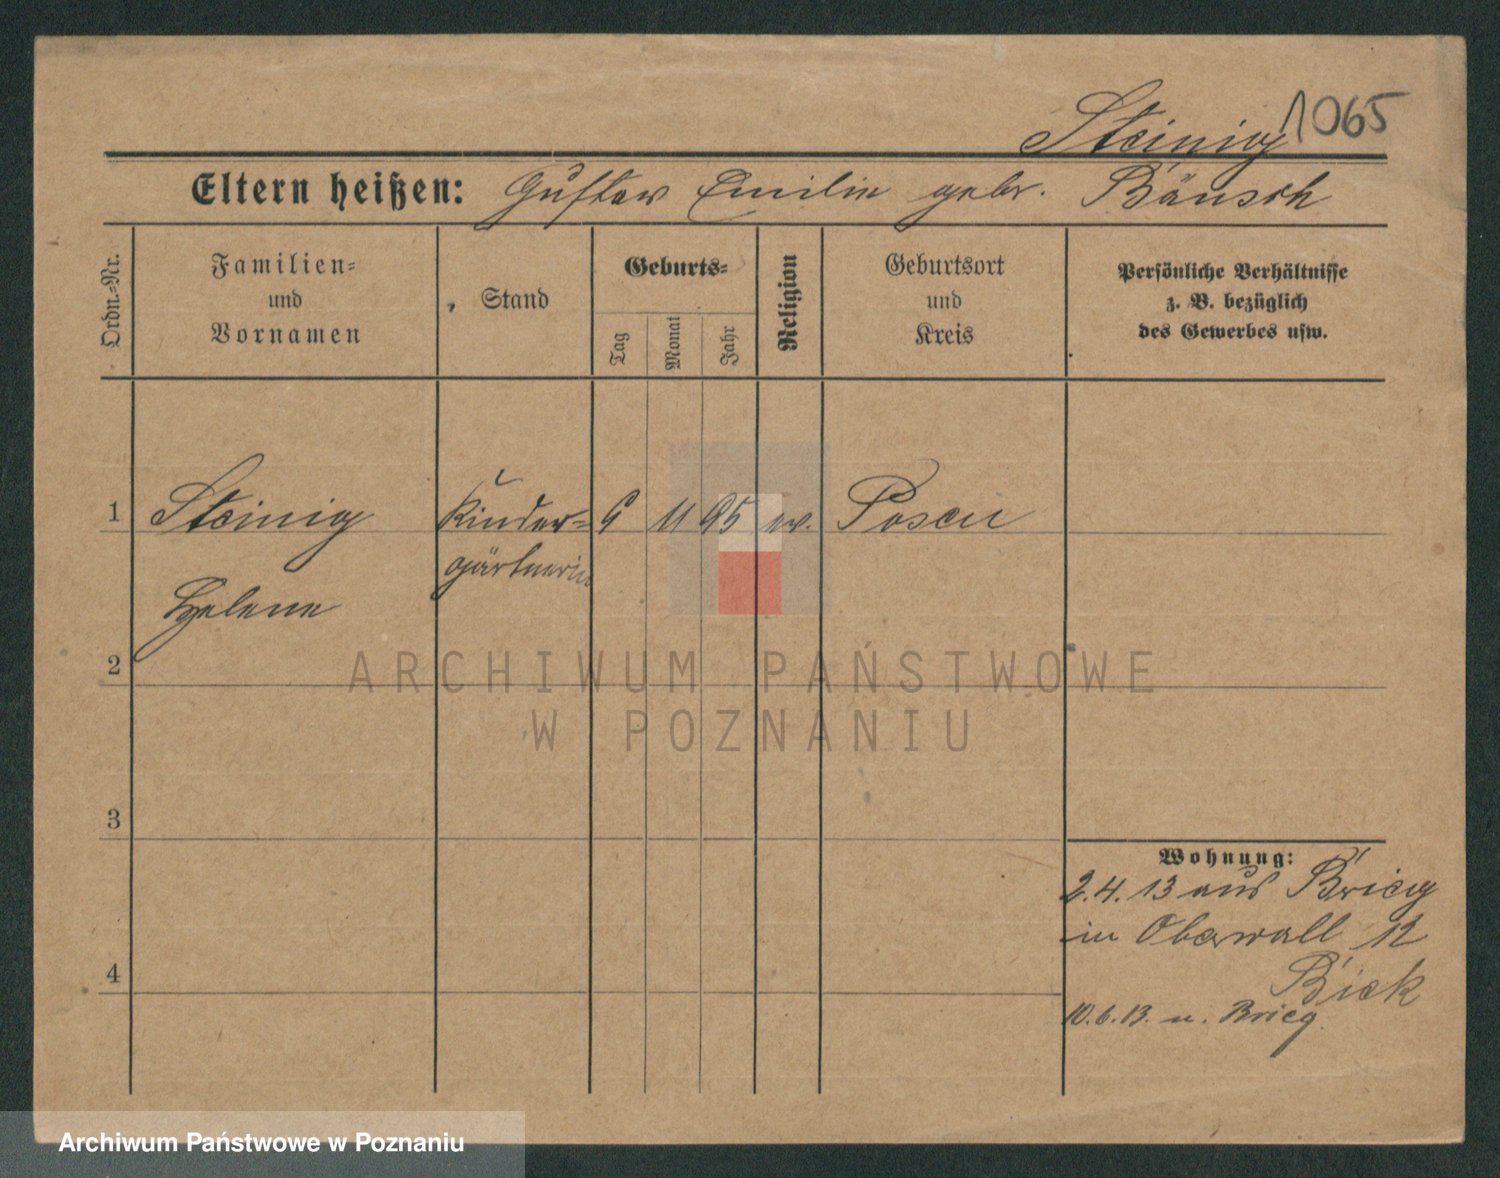 Steinig 1065
Eltern heißen: Gustav Emilie gebr. Bänsch
Ordn.-Nr.
Familien-
und
Vornamen
Stand
Geburts-
Tag
Monat
Jahr
Religion
Geburtsort
und
Kreis
Persönliche Verhältnisse
z. B. bezüglich
des Gewerbes usw.
1 Steinig Kinder- 9 11 95 ev. Posen
gärtnerin
Helene
2
ARCHIWUM PAŃSTWOWE
W POZNANIU
3
Wohnung:
2.4.13 aus Brieg
in Oberwall 12
Bick
4
10.6.13. n. Brieg
Archiwum Państwowe w Poznaniu